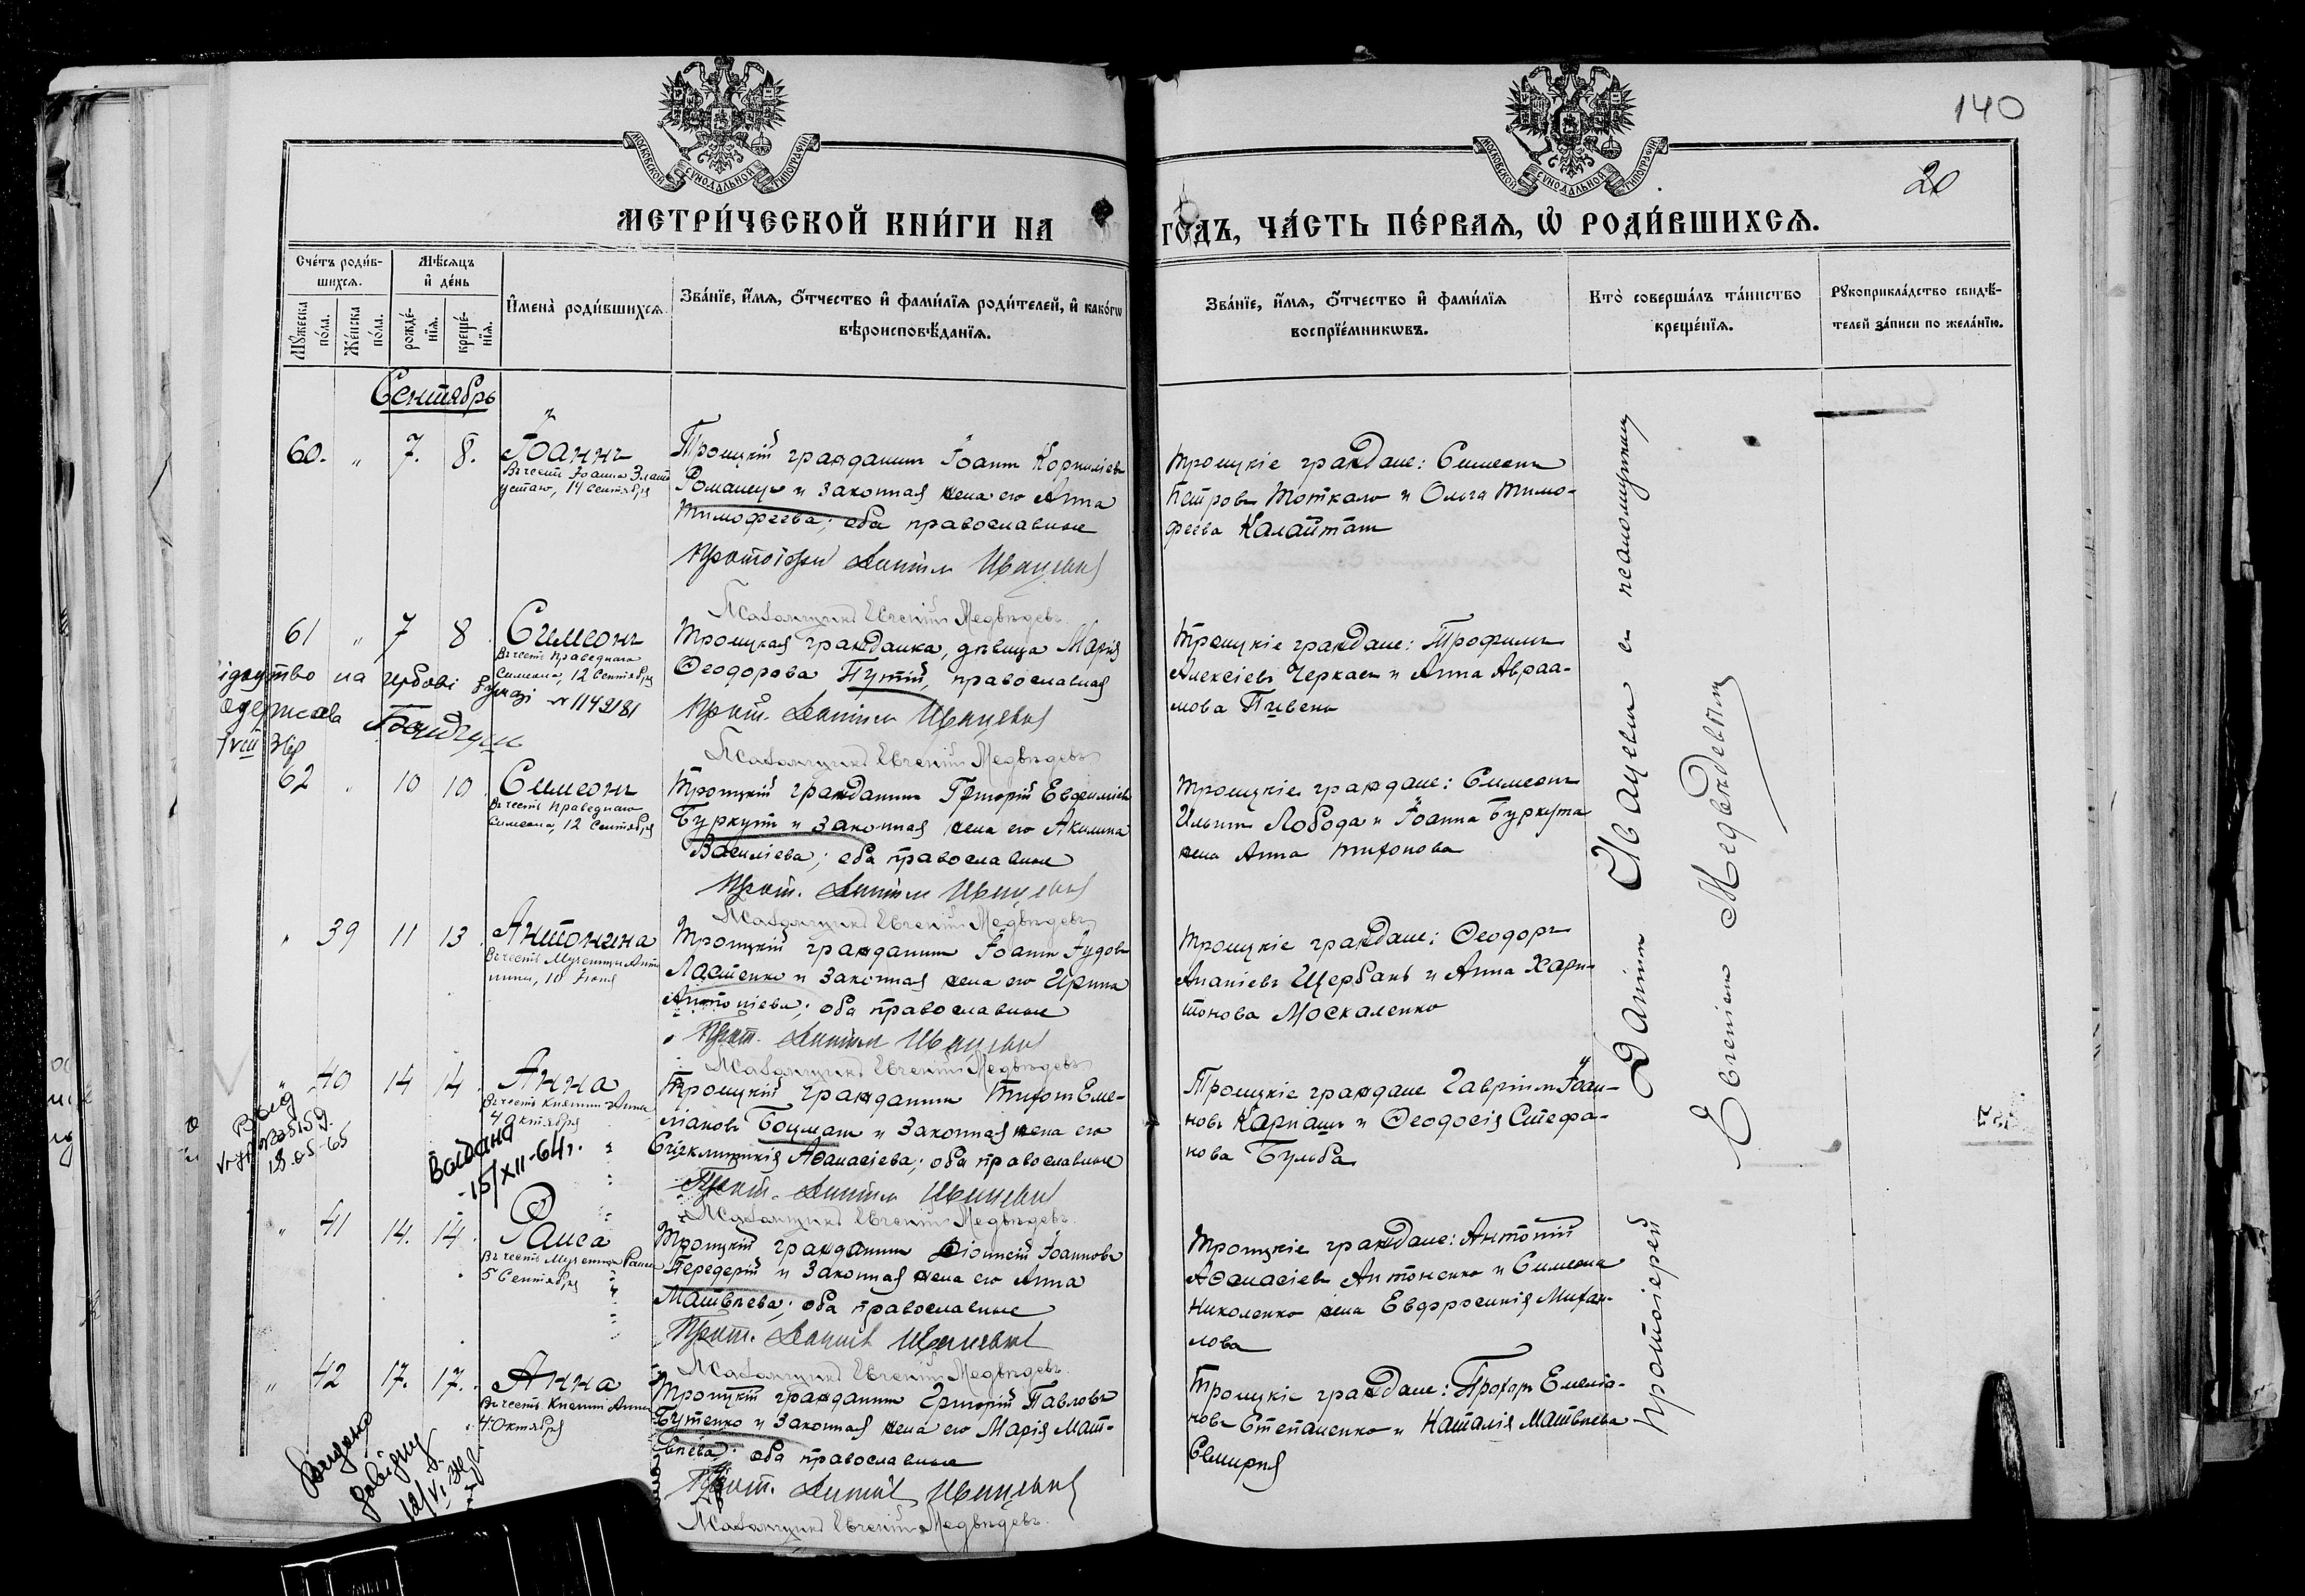 140
20
МОСКОВСКОЙ СѴНОДАЛЬНОЙ ТИПОГРАФІИ
МОСКОВСКОЙ СѴНОДАЛЬНОЙ ТИПОГРАФІИ
МЕТРИ́ЧЕСКОЙ КНИ́ГИ НА
ГОДЪ, ЧА́СТЬ ПЕ́РВАѦ, Ѡ҆ РОДИ́ВШИХСѦ.
Сче́тъ роди́в-
шихсѧ.
Мѣ́сѧцъ
и҆ де́нь
Мꙋ́жеска по́ла.
Же́нска по́ла.
рожде́-нїѧ.
креще́-нїѧ.
И҆мена̀ роди́вшихсѧ
Зва́нїе, и҆́мѧ, ѻ҆́тчество и҆ фами́лїѧ роди́телей, и҆ како́гѡ
вѣроисповѣ́данїѧ.
Зва́нїе, и҆́мѧ, ѻ҆́тчество и҆ фами́лїѧ
воспрїе́мникѡвъ.
Кто̀ соверша́лъ та́инство
креще́нїѧ.
Рꙋкоприкла́дство свидѣ́-
телей за́писи по жела́нїю.
Сентябрь
60. " 7. 8. Іоаннъ
Въ честь Іоанна Злато
устаго, 14 Сентября
Троицкій гражданинъ Іоаннъ Корниліевъ
Романецъ и законная жена его Анна
Тимофеева; оба православные
Протоіерей Даніилъ Иваневъ
Псаломщикъ Евгеній Медвѣдевъ
Троицкіе граждане: Симеонъ
Петровъ Тоткало и Ольга Тимо-
феева Калайтанъ
61 " 7 8 Симеонъ
Въ честь Праведнаго
Симеона, 12 Сентября
Троицкая гражданка, дѣвица Марія
Ѳеодорова Путій, православная
Прот. Даніилъ Иваневъ
Псаломщикъ Евгеній Медвѣдевъ
Троицкіе граждане: Трофимъ
Алексіевъ Черкасъ и Анна Авраа-
мова Пивень
на гербові бумазі № 1142181
одержав
62 " 10 10 Симеонъ
Въ честь Праведнаго
Симеона, 12 Сентября
Троицкій гражданинъ Григорій Евѳиміевъ
Буркутъ и законная жена его Акилина
Василіева; оба православные
Прот. Даніилъ Иваневъ
Псаломщикъ Евгеній Медвѣдевъ
Троицкіе граждане: Симеонъ
Ильинъ Лобода и Іоанна Буркута
жена Анна Тихонова
" 39 11 13 Антонина
Въ честь Мученицы Анто
нины, 10 Іюня
Троицкій гражданинъ Іоаннъ Іудовъ
Ластенко и законная жена его Ирина
Антоніева; оба православные
Прот. Даніилъ Иваневъ
Псаломщикъ Евгеній Медвѣдевъ
Троицкіе граждане: Ѳеодоръ
Ананіевъ Щербань и Анна Хари-
тонова Москаленко
" 40 14 14 Анна
Въ честь Княгини Анны
4 Октября
Троицкій гражданинъ Тихонъ Еме-
ліановъ Боцманъ и законная жена его
Аѳанасіева; оба православные
Прот. Даніилъ Иваневъ
Псаломщикъ Евгеній Медвѣдевъ
Троицкіе граждане Гавріилъ Іоан-
новъ Карнашъ и Ѳеодосія Стефа-
нова Бульба
18-05-65
15/XII-64г.
" 41 14. 14. Раиса
Въ честь Мученицы Раисы
5 Сентября
Троицкій гражданинъ Діонисій Іоанновъ
Передерій и законная жена его Анна
Матвѣева; оба православные
Прот. Даніилъ Иваневъ
Псаломщикъ Евгеній Медвѣдевъ
Троицкіе граждане: Антоній
Аѳанасіевъ Антоненко и Симеона
Николенко жена Евфросинія Михаи-
лова
" 42 17. 17. Анна
Въ честь Княгини Анны
4 Октября
Троицкій гражданинъ Григорій Павловъ
Бутенко и законная жена его Марія Мат-
вѣева; оба православные
Прот. Даніилъ Иваневъ
Псаломщикъ Евгеній Медвѣдевъ
Троицкіе граждане: Прохоръ Емелія-
новъ Степаненко и Наталія Матвѣева
Протоіерей Даніилъ Иваневъ съ псаломщикомъ
Евгеніемъ Медвѣдевымъ